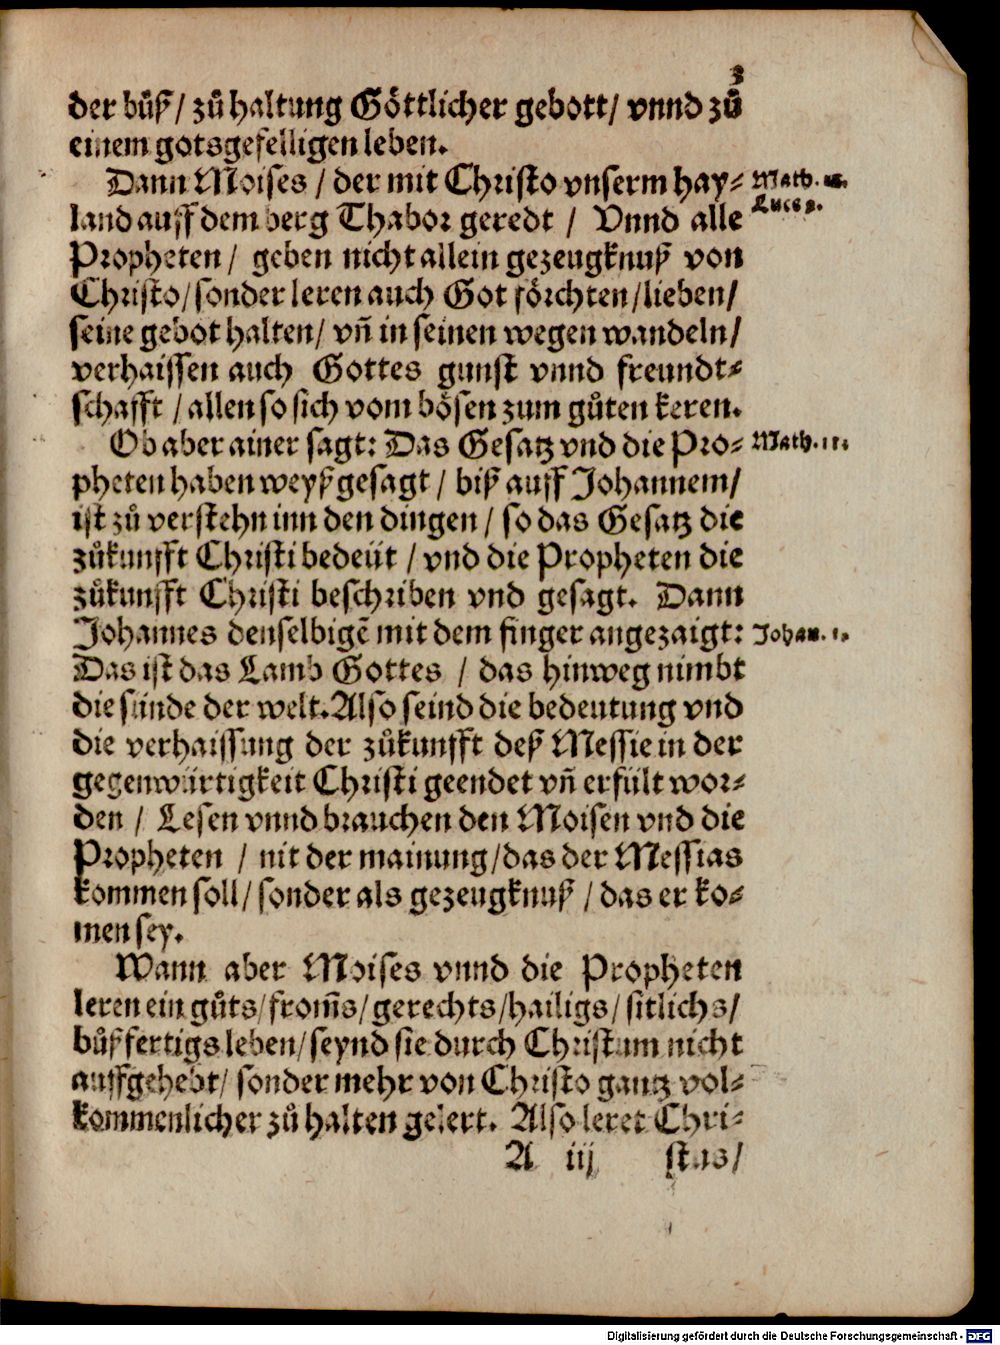 3
der bůß / zů haltung Göttlicher gebott / vnnd zů
einem gotsgeselligen leben.
Dann Moises / der mit Christo vnserm hay⸗
land auff dem berg Thabor geredt / Vnnd alle
Propheten / geben nicht allein gezeugknuß von
Christo / sonder leren auch Got förchten / lieben /
seine gebot halten / vñ in seinen wegen wandeln /
verhaissen auch Gottes gunst vnnd freundt⸗
schafft / allen so sich vom bösen zum gůten keren.
Ob aber ainer sagt: Das Gesatz vnd die Pro⸗
pheten haben weyßgesagt / biß auff Johannem /
ist zů verstehn inn den dingen / so das Gesatz die
zůkunfft Christi bedeüt / vnd die Propheten die
zůkunfft Christi beschriben vnd gesagt. Dann
Johannes denselbigẽ mit dem finger angezaigt:
Das ist das Lamb Gottes / das hinweg nimbt
die sünde der welt. Also seind die bedeutung vnd
die verhaissung der zůkunfft deß Messie in der
gegenwürtigkeit Christi geendet vñ erfült wor⸗
den / Lesen vnnd brauchen den Moisen vnd die
Propheten / nit der mainung / das der Messias
kommen soll / sonder als gezeugknuß / das er ko⸗
men sey.
Wann aber Moises vnnd die Propheten
leren ein gůts / from̃s / gerechts / hailigs / sitlichs /
bůßfertigs leben / seynd sie durch Christum nicht
auffgehebt / sonder mehr von Christo gantz vol⸗
kommenlicher zů halten gelert. Also leret Chri⸗
A iij stus /
Math.
Luce 9.
Math. 11.
Johan. 1.
Digitalisierung gefördert durch die Deutsche Forschungsgemeinschaft - DFG